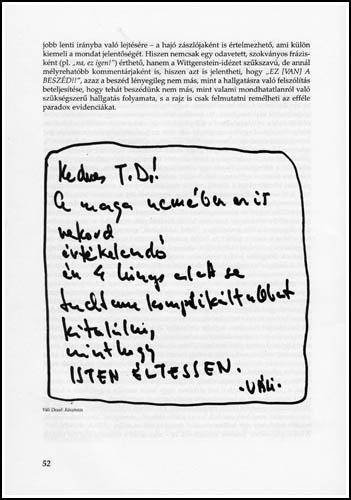 jobb lenti irányba való lejtésére – a hajó zászlójaként is értelmezhető, ami külön
kiemeli a mondat jelentőségét. Hiszen nemcsak egy odavetett, szokványos frázis-
ként (pl. „na, ez igen!”) érthető, hanem a Wittgenstein-idézet szűkszavú, de annál
mélyrehatóbb kommentárjaként is, hiszen azt is jelentheti, hogy „EZ [VAN] A
BESZÉD!!”, azaz a beszéd lényegileg nem más, mint a hallgatásra való felszólítás
beteljesítése, hogy tehát beszédünk nem más, mint valami mondhatatlanról való
szükségszerű hallgatás folyamata, s a rajz is csak felmutatni remélheti az efféle
paradox evidenciákat.
Kedves T.D.!
A maga nemében ez is
rekord
értékelendő
én 4 alatt se
tudtam komplikáltabbat
kitalálni,
minthogy
ISTEN ÉLTESSEN.
·VÁLI·
Váli Dezső
52